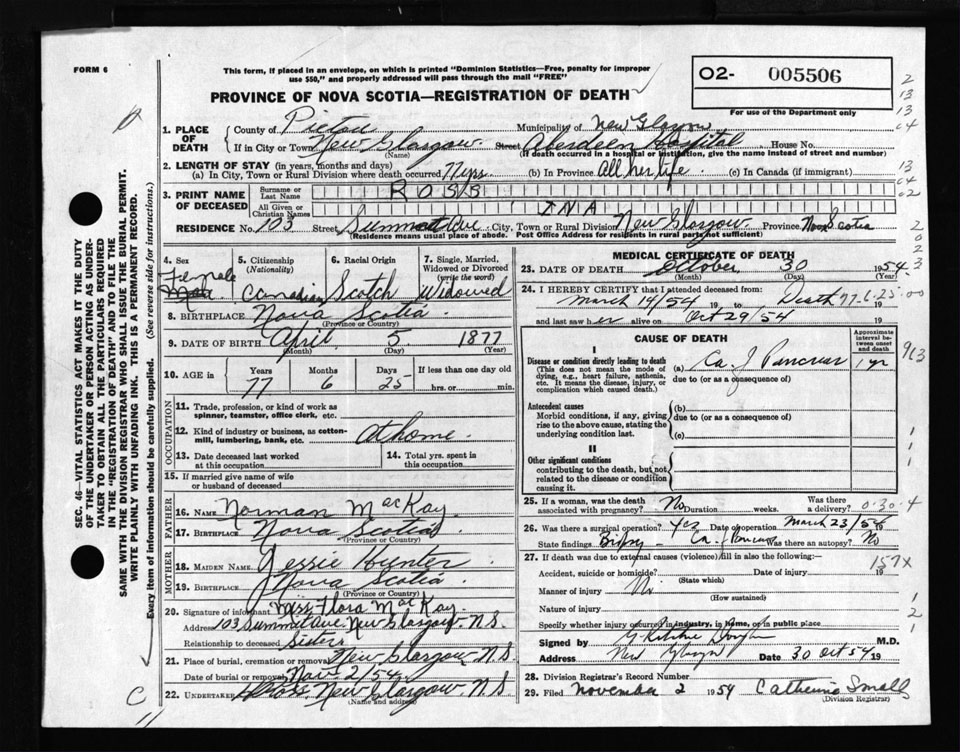 FORM 6
This form, if placed in an envelope, on which is printed "Dominion Statistics—Free, penalty for improper
use $50," and properly addressed will pass through the mail "FREE"
PROVINCE OF NOVA SCOTIA—REGISTRATION OF DEATH
02- 005506
For use of the Department only.
2
13
13
04
13
04
02
2
0
2
3
1. PLACE OF DEATH
County of Pictou Municipality of New Glasgow
If in City or Town New Glasgow Street Aberdeen Hospital, House No.
(Name) (If death occurred in a hospital or institution, give the name instead of street and number)
2. LENGTH OF STAY (in years, months and days)
(a) In City, Town or Rural Division where death occurred 77 yrs (b) In Province All her life. (c) In Canada (if immigrant)
3. PRINT NAME OF DECEASED
Surname or Last Name ROSS
All Given or Christian Names INA
RESIDENCE No. 103 Street Summit Ave City, Town or Rural Division New Glasgow Province Nova Scotia
(Residence means usual place of abode. Post Office Address for residents in rural parts not sufficient)
4. Sex Female Male
5. Citizenship (Nationality) Canadian
6. Racial Origin Scotch
7. Single, Married, Widowed or Divorced (write the word) Widowed
8. BIRTHPLACE Nova Scotia
(Province or Country)
9. DATE OF BIRTH April 5 1877
(Month) (Day) (Year)
10. AGE in Years 77 Months 6 Days 25 If less than one day old
hrs. or min.
OCCUPATION
11. Trade, profession, or kind of work as
spinner, teamster, office clerk, etc.
12. Kind of industry or business, as cotton-
mill, lumbering, bank, etc. At home.
13. Date deceased last worked
at this occupation
14. Total yrs. spent in
this occupation
15. If married give name of wife
or husband of deceased
FATHER
16. Name Norman MacKay.
17. Birthplace Nova Scotia
(Province or Country)
MOTHER
18. MAIDEN NAME Jessie Hunter
19. BIRTHPLACE Nova Scotia.
(Province or Country)
20. Signature of informant Miss Flora MacKay.
Address 103 Summit Ave. New Glasgow N.S.
Relationship to deceased Sister
21. Place of burial, cremation or removal New Glasgow N.S.
Date of burial or removal Nov 2/54
22. UNDERTAKER Ross. New Glasgow N.S
(Name and address)
MEDICAL CERTIFICATE OF DEATH
23. DATE OF DEATH October 30 1954
(Month) (Day)
24. I HEREBY CERTIFY that I attended deceased from:
March 14/54 19 to Death 77-6-25-00
and last saw her alive on Oct 29/54 19
CAUSE OF DEATH
Approximate interval between onset and death
I
Disease or condition directly leading to death
(This does not mean the mode of
dying, e.g., heart failure, asthenia,
etc. It means the disease, injury, or
complication which caused death.)
(a) Ca of Pancreas 1 yr
due to (or as a consequence of)
Antecedent causes
Morbid conditions, if any, giving
rise to the above cause, stating the
underlying condition last.
(b)
due to (or as a consequence of)
(c)
II
Other significant conditions
contributing to the death, but not
related to the disease or condition
causing it.
25. If a woman, was the death
associated with pregnancy? No Duration weeks. Was there
a delivery? 0-30-4
26. Was there a surgical operation? yes Date of operation March 23/54
State findings Biopsy - Ca. Pancreas Was there an autopsy? No
27. If death was due to external causes (violence) fill in also the following:—
157x
Accident, suicide or homicide? Date of injury 19
(State which)
Manner of injury No
(How sustained)
Nature of injury
Specify whether injury occurred in industry, in home, or in public place
Signed by M.D.
Address New Glasgow Date 30 Oct 54 19
28. Division Registrar's Record Number
29. Filed November 2 1954 Catherine Small
(Division Registrar)
SEC. 46—VITAL STATISTICS ACT MAKES IT THE DUTY
OF THE UNDERTAKER OR PERSON ACTING AS UNDER-
TAKER TO OBTAIN ALL THE PARTICULARS REQUIRED
IN THE "REGISTRATION OF DEATH" AND TO FILE THE
SAME WITH THE DIVISION REGISTRAR WHO SHALL ISSUE THE BURIAL PERMIT.
WRITE PLAINLY WITH UNFADING INK. THIS IS A PERMANENT RECORD.
Every item of information should be carefully supplied. (See reverse side for instructions.)
C